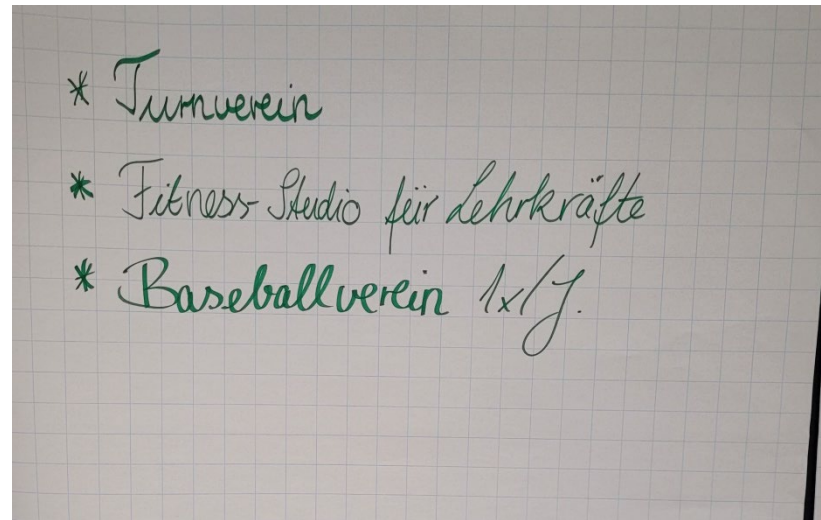 * Turnverein
* Fitness-Studio für Lehrkräfte
* Baseballverein 1x/J.